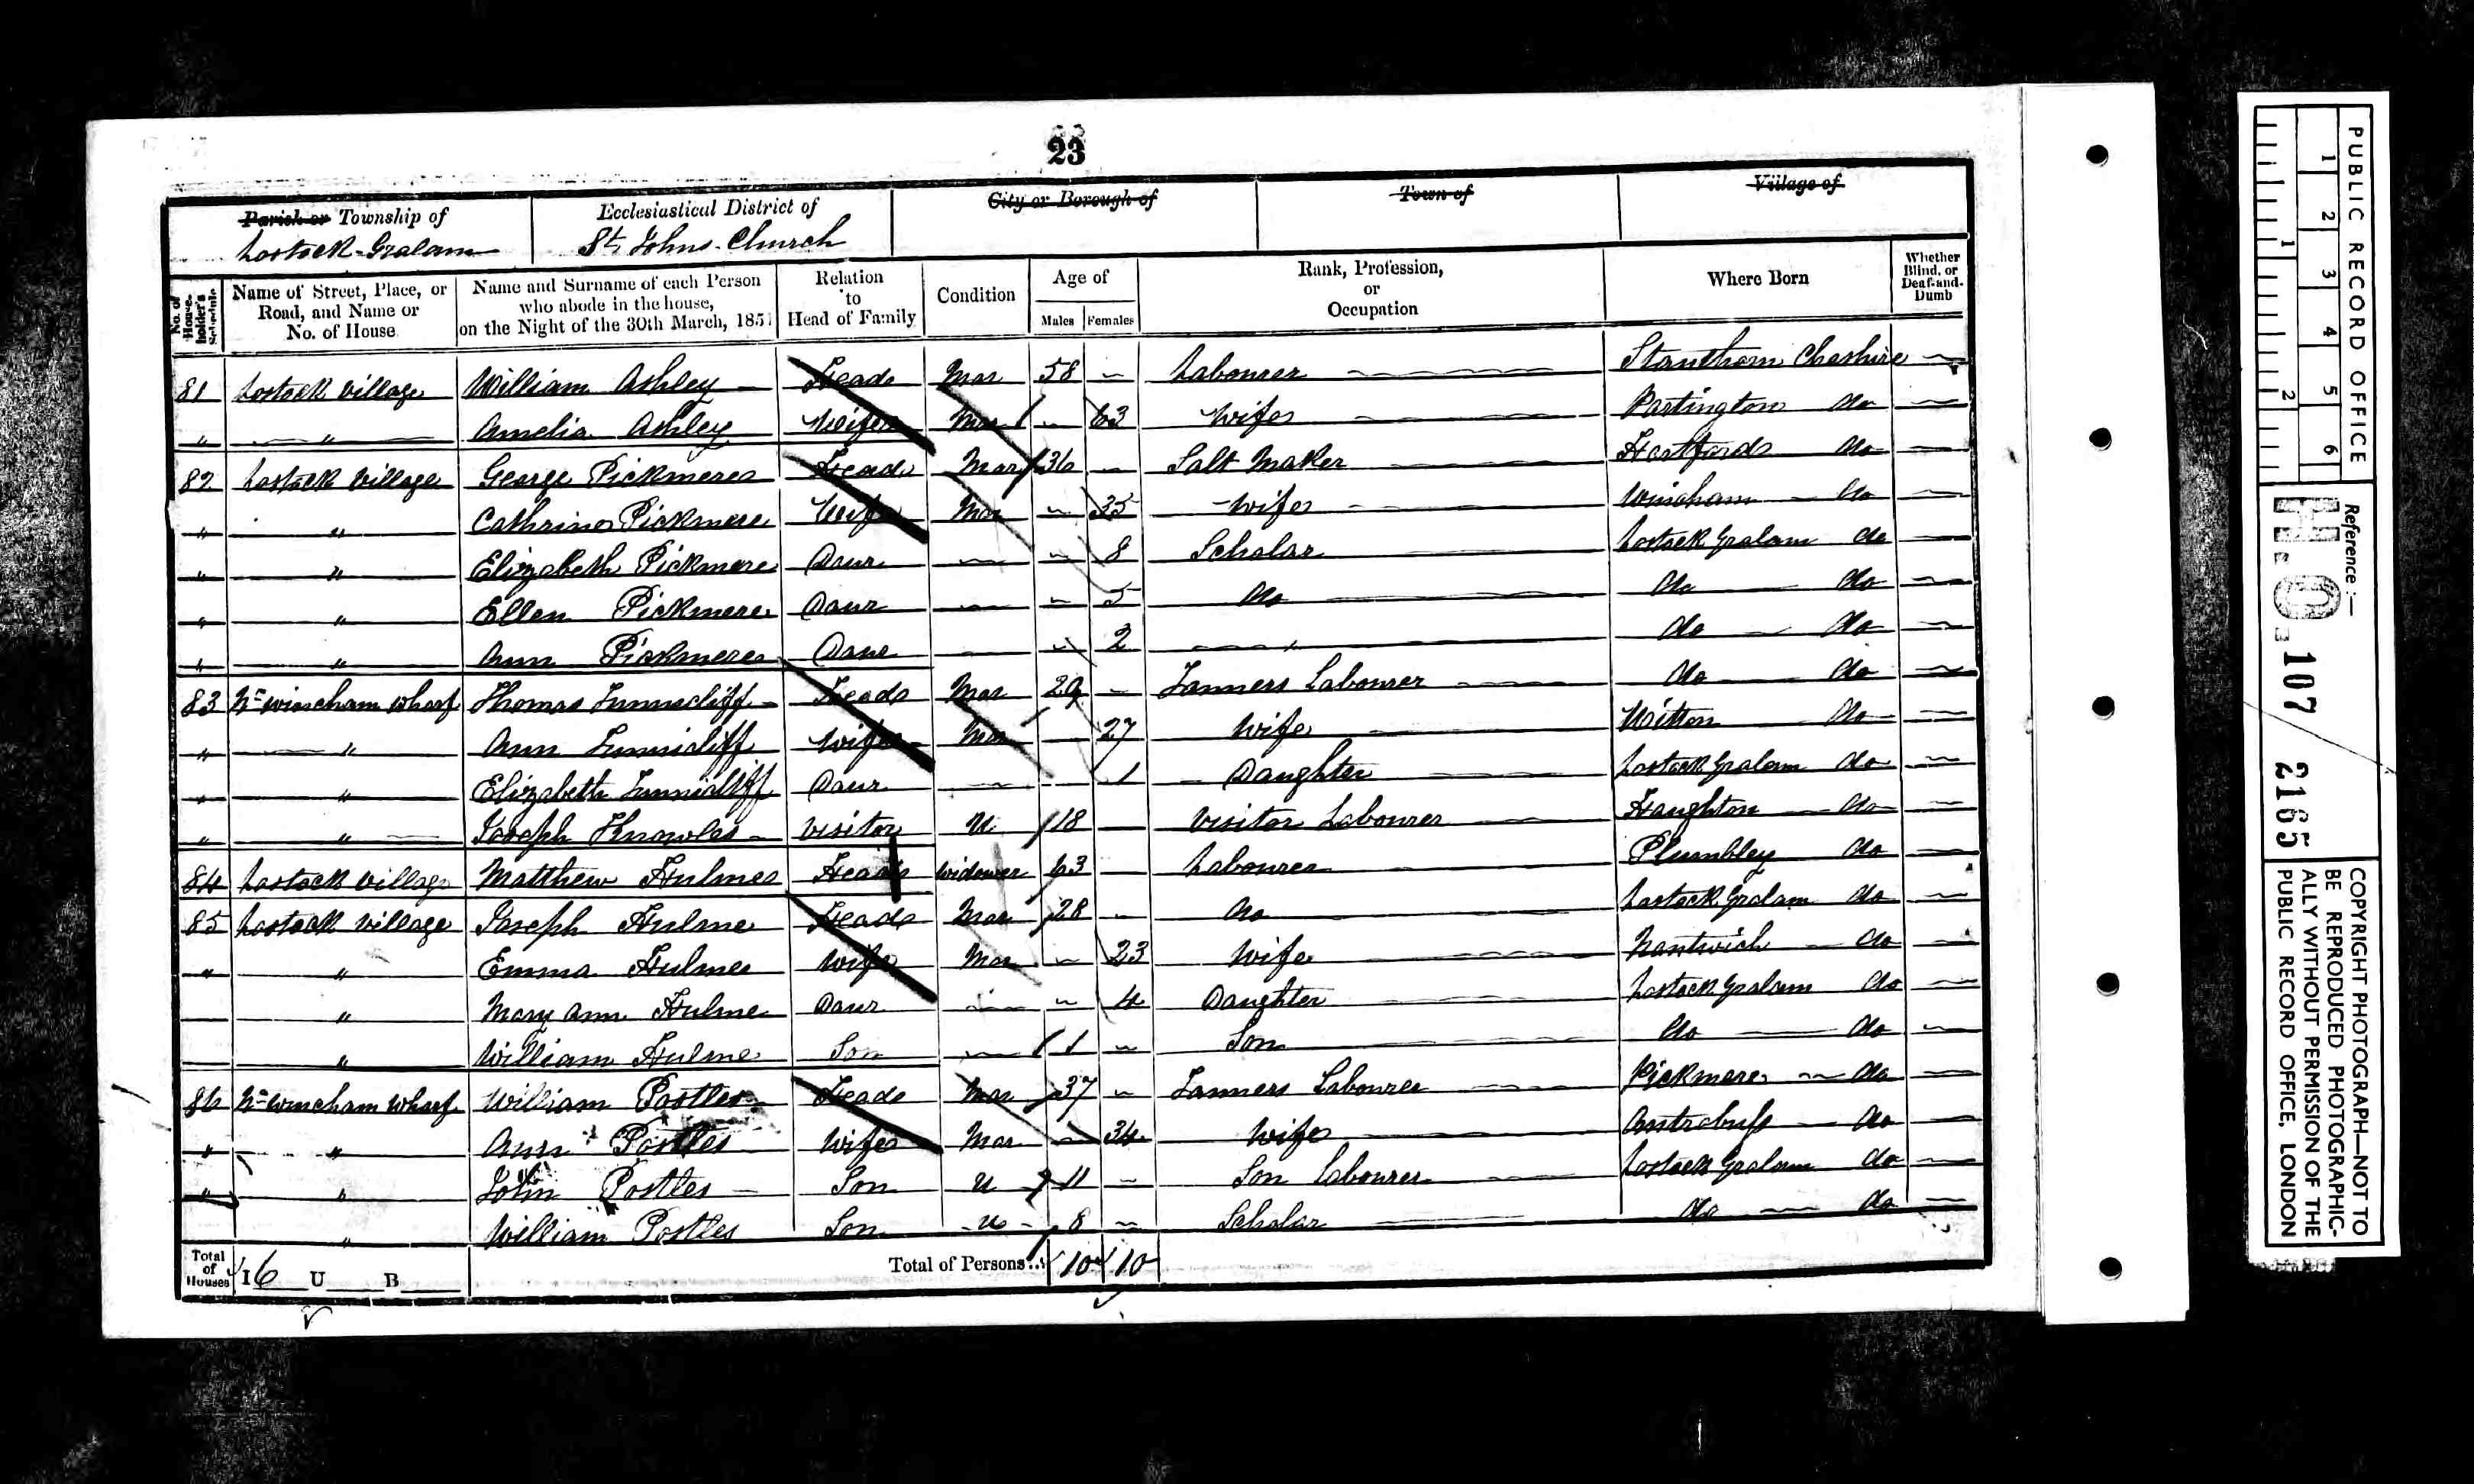 23
Parish or Township of
Lostock-Gralam
Ecclesiastical District of
St Johns-Church
City or Borough of
Town of
Village of
No. of House-holder's Schedule
Name of Street, Place, or Road, and Name or No. of House
Name and Surname of each Person who abode in the house, on the Night of the 30th March, 1851
Relation to Head of Family
Condition
Age of
Males Females
Rank, Profession, or Occupation
Where Born
Whether Blind, or Deaf-and-Dumb
81 Lostock village William Ashley Head Mar 58 Labourer Stanthorn Cheshire
" " Amelia Ashley Wife Mar 63 Wife Partington do
82 Lostock Village George Pickmere Head Mar 36 Salt Maker Hartford do
" " Cathrine Pickmere Wife Mar 35 Wife Wincham do
" " Elizabeth Pickmere Daur 8 Scholar Lostock Gralam do
" " Ellen Pickmere Daur 5 do do do
" " Ann Pickmere Daur 2 " do do
83 Nr Wincham Wharf Thomas Tunnicliff Head Mar 29 Tanners Labourer do do
" " Ann Tunnicliff Wife Mar 27 Wife Witton do
" " Elizabeth Tunnicliff Daur 1 Daughter Lostock Gralam do
" " Joseph Knowles visitor U 18 Visitor Labourer Haughton do
84 Lostock Village Matthew Hulme Head Widower 63 Labourer Plumbley do
85 Lostock Village Joseph Hulme Head Mar 28 do Lostock Gralam do
" " Emma Hulme Wife Mar 23 Wife Nantwich do
" Mary Ann Hulme Daur 4 Daughter Lostock Gralam do
" William Hulme Son 1 Son do do
86 Nr Wincham Wharf William Postles Head Mar 37 Tanners Labourer Pickmere do
" " Ann Postles Wife Mar 34 Wife Antrobuss do
" " John Postles Son U 11 Son Labourer Lostock Gralam do
" William Postles Son U 8 Scholar do do
Total of Houses I 6 U B
Total of Persons... 10 10
PUBLIC RECORD OFFICE
1 2 3 4 5 6
1 2
Reference:—
H.O. 107 2165
COPYRIGHT PHOTOGRAPH—NOT TO
BE REPRODUCED PHOTOGRAPHIC-
ALLY WITHOUT PERMISSION OF THE
PUBLIC RECORD OFFICE, LONDON